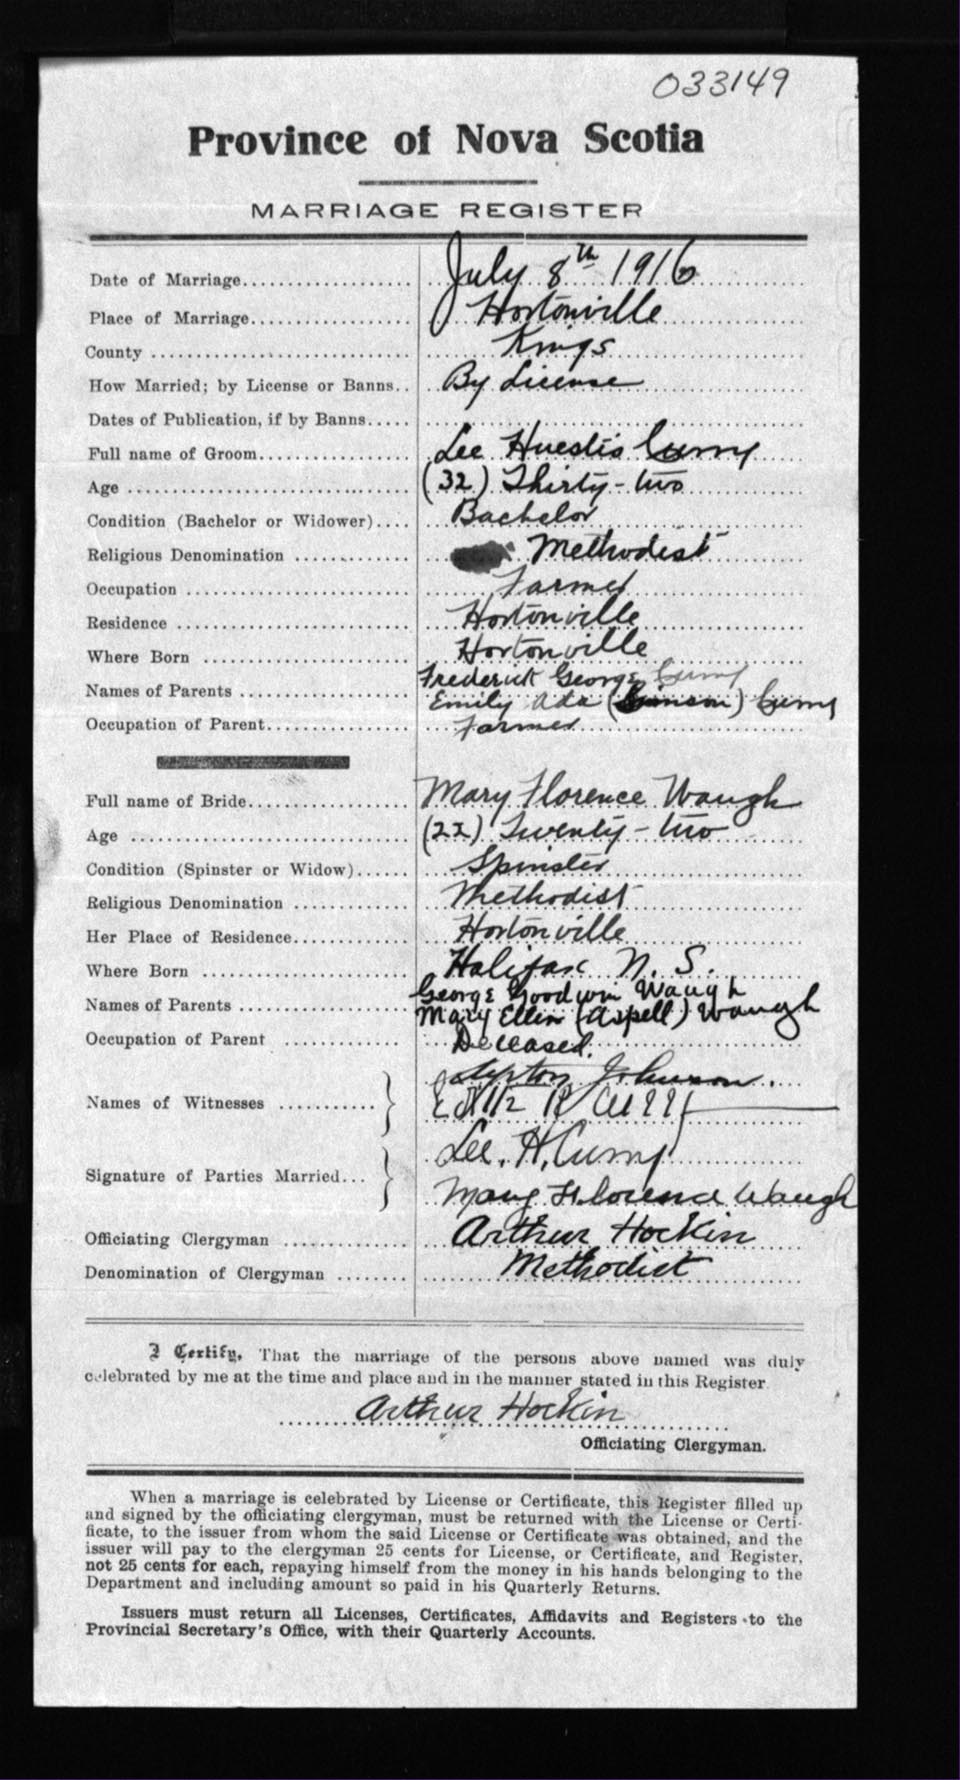 033149
Province of Nova Scotia
MARRIAGE REGISTER
Date of Marriage................... July 8th 1916
Place of Marriage.................. Hortonville
County ............................. Kings
How Married; by License or Banns.. By License
Dates of Publication, if by Banns.....
Full name of Groom................. Lee Huestis Curry
Age ................................ (32) Thirty-two
Condition (Bachelor or Widower).... Bachelor
Religious Denomination ............. Methodist
Occupation ......................... Farmer
Residence .......................... Hortonville
Where Born ........................ Hortonville
Names of Parents ................... Frederick George Curry
Emily Ada ( ) Curry
Occupation of Parent................ Farmer
Full name of Bride.................. Mary Florence Waugh
Age ............................... (22) Twenty-two
Condition (Spinster or Widow)...... Spinster
Religious Denomination ............. Methodist
Her Place of Residence............. Hortonville
Where Born ........................ Halifax N. S.
Names of Parents ................... George Goodwin Waugh
Mary Ellen (Aspell) Waugh
Occupation of Parent .............. Deceased.
Names of Witnesses ........... Johnson.
R Curry
Signature of Parties Married... Lee. H. Curry
Mary Florence Waugh
Officiating Clergyman .............. Arthur Hockin
Denomination of Clergyman ........ Methodist
I Certify, That the marriage of the persons above named was duly
celebrated by me at the time and place and in the manner stated in this Register
Arthur Hockin
Officiating Clergyman.
When a marriage is celebrated by License or Certificate, this Register filled up
and signed by the officiating clergyman, must be returned with the License or Certi-
ficate, to the issuer from whom the said License or Certificate was obtained, and the
issuer will pay to the clergyman 25 cents for License, or Certificate, and Register,
not 25 cents for each, repaying himself from the money in his hands belonging to the
Department and including amount so paid in his Quarterly Returns.
Issuers must return all Licenses, Certificates, Affidavits and Registers to the
Provincial Secretary's Office, with their Quarterly Accounts.